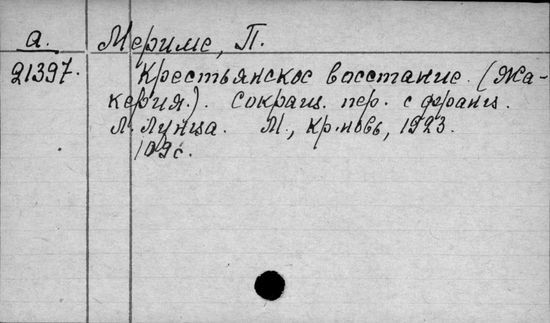 а. Мериме, П.
21397. Крестьянское восстание. (Жа-
керия.). Сокращ. пер. с франц.
Л. Лунца. М., Кр. новь, 1923.
109 с.